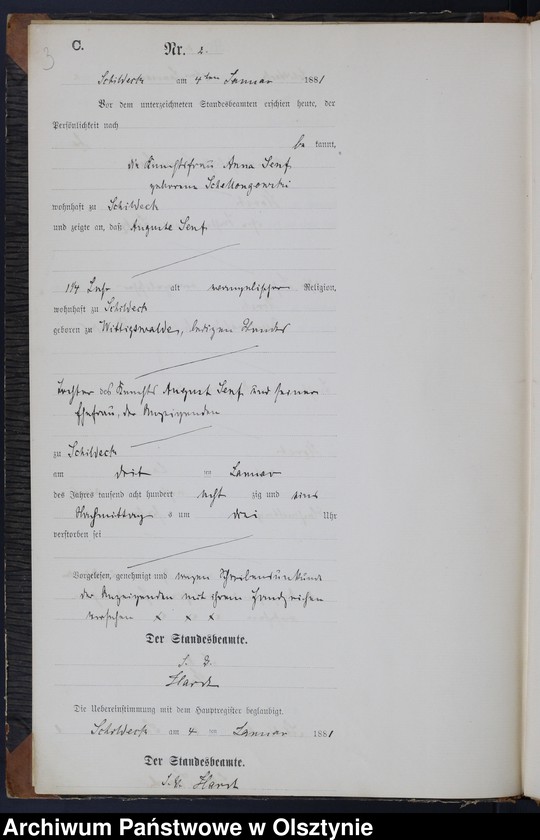 3
C.
Nr. 2.
Schildeck am 4ten Januar 1881
Vor dem unterzeichneten Standesbeamten erschien heute, der
Persönlichkeit nach
be kannt,
die Knechtsfrau Anna Senf
geborene
wohnhaft zu Schildeck
und zeigte an, daß Auguste Senf
alt evangelischer Religion,
wohnhaft zu Schildeck
geboren zu Wittigwalde, ledigen Standes
Tochter des Knechts August Senf und seiner
Ehefrau, der Anzeigenden
zu Schildeck
am drit ten Januar
des Jahres tausend acht hundert acht zig und eins
Nachmittag s um drei Uhr
verstorben sei
Vorgelesen, genehmigt und wegen Schreibensunkunde
der Anzeigenden mit ihrem Handzeichen
versehen x x x
Der Standesbeamte.
Hardt
Die Uebereinstimmung mit dem Hauptregister beglaubigt.
Schildeck am 4 ten Januar 1881
Der Standesbeamte.
Hardt
Archiwum Państwowe w Olsztynie